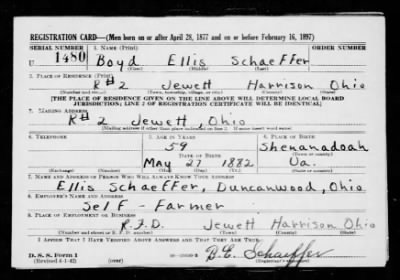 REGISTRATION CARD—(Men born on or after April 28, 1877 and on or before February 16, 1897)
SERIAL NUMBER 1. NAME (Print) ORDER NUMBER
U 1480 Boyd Ellis Schaeffer
(First) (Middle) (Last)
2. PLACE OF RESIDENCE (Print)
R#2 Jewett Harrison Ohio
(Number and street) (Town, township, village, or city) (County) (State)
[THE PLACE OF RESIDENCE GIVEN ON THE LINE ABOVE WILL DETERMINE LOCAL BOARD
JURISDICTION; LINE 2 OF REGISTRATION CERTIFICATE WILL BE IDENTICAL]
3. MAILING ADDRESS
R#2 Jewett, Ohio
[Mailing address if other than place indicated on line 2. If same insert word same]
4. TELEPHONE 5. AGE IN YEARS 6. PLACE OF BIRTH
59 Shenandoah
DATE OF BIRTH (Town or county)
May 27 1882 Va.
(Exchange) (Number) (Mo.) (Day) (Yr.) (State or country)
7. NAME AND ADDRESS OF PERSON WHO WILL ALWAYS KNOW YOUR ADDRESS
Ellis Schaeffer, Duncanwood, Ohio
8. EMPLOYER'S NAME AND ADDRESS
Self - Farmer
9. PLACE OF EMPLOYMENT OR BUSINESS
R.F.D. Jewett Harrison Ohio
(Number and street or R. F. D. number) (Town) (County) (State)
I AFFIRM THAT I HAVE VERIFIED ABOVE ANSWERS AND THAT THEY ARE TRUE.
D. S. S. Form 1
(Revised 4-1-42) B.E. Schaeffer